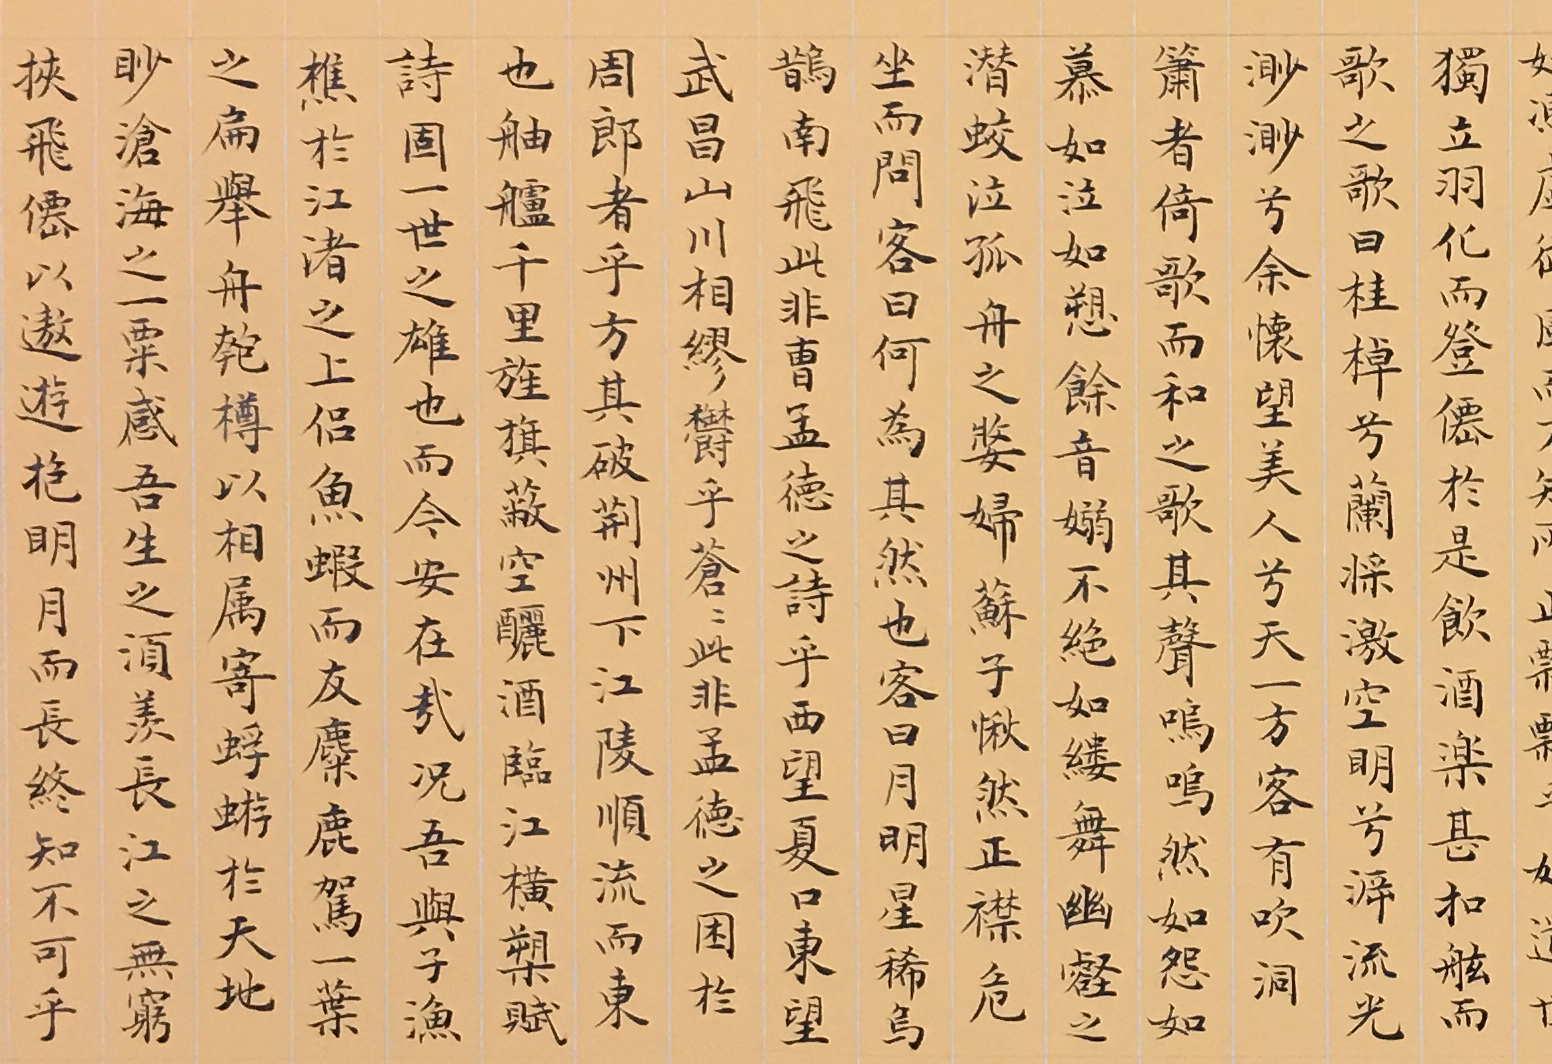 獨立羽化而登僊於是飲酒楽甚扣舷而
歌之歌曰桂棹兮蘭槳激空明兮泝流光
渺渺兮余懐望美人兮天一方客有吹洞
簫者倚歌而和之歌其聲嗚嗚然如怨如
慕如泣如愬餘音嫋不絕如縷舞幽壑之
潜蛟泣孤舟之嫠婦蘇子愀然正襟危
坐而問客曰何為其然也客曰月明星稀烏
鵲南飛此非曹孟德之詩乎西望夏口東望
武昌山川相繆欝乎蒼〻此非孟德之困於
周郎者乎方其破荆州下江陵順流而東
也舳艫千里旌旗蔽空釃酒臨江橫槊賦
詩固一世之雄也而今安在㢤况吾與子漁
樵於江渚之上侣魚蝦而友麋鹿駕一葉
之扁舉舟匏樽以相属寄蜉蝣於天地
眇滄海之一粟感吾生之湏羨長江之無窮
挾飛僊以遨遊抱明月而長終知不可乎